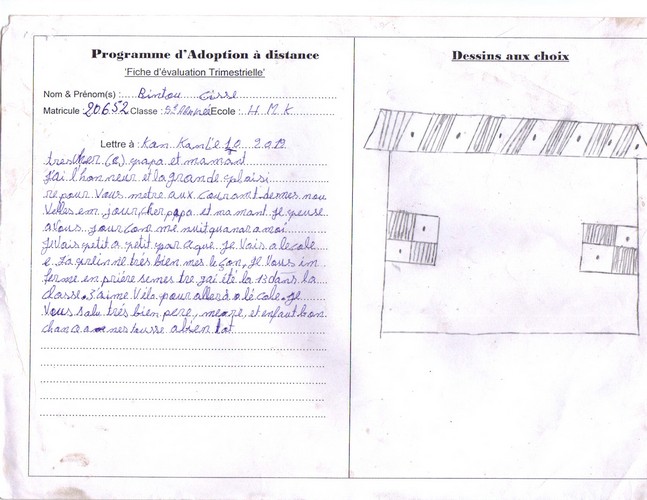 Programme d'Adoption à distance
'Fiche d'évaluation Trimestrielle'
Nom & Prénom(s) : Bintou Cisse
Matricule : 20652 Classe : 5e Année Ecole : H M K
Lettre à : Kan Kan Le 10 2012
tres cher (e) papa et mamant
J'ai l'honneur et la grande plaisi
re pour Vous metre aux Courant demes nou
Velles em jour cher papa et ma mant je peuse
a Vous jour con me nuit quanar a moi
Je Vais petit a petit par a que Je Vois a lecole
e. La prlin ne très bien mes leçon, Je Vous in
ferme en prière semes tre J'ai été la 13 dans la
classe. J'aime Vélo pour aller a lé cole. Je
Vous salu très bien pere, meore, et enfant bon
chan ca mes tousse a bien tot
Dessins aux choix